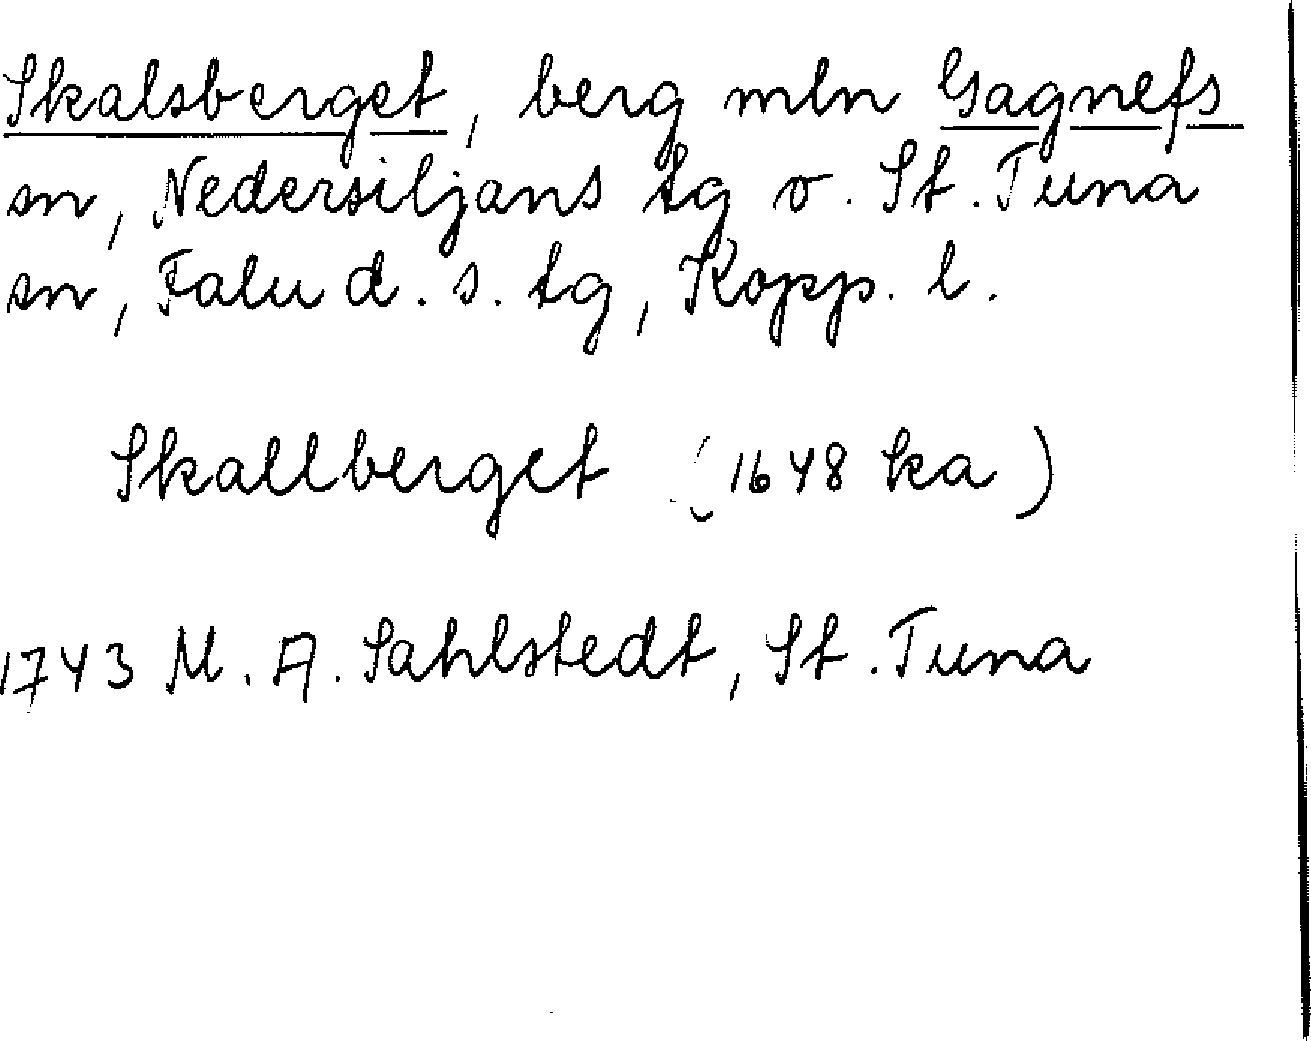 Skalsberget, berg mln Gagnefs
sn, Nedersiljans tg o. St. Tuna
sn, Falu d. s. tg, Kopp. l.
Skallberget (1648 ka)
1743 M. A. Sahlstedt, St. Tuna